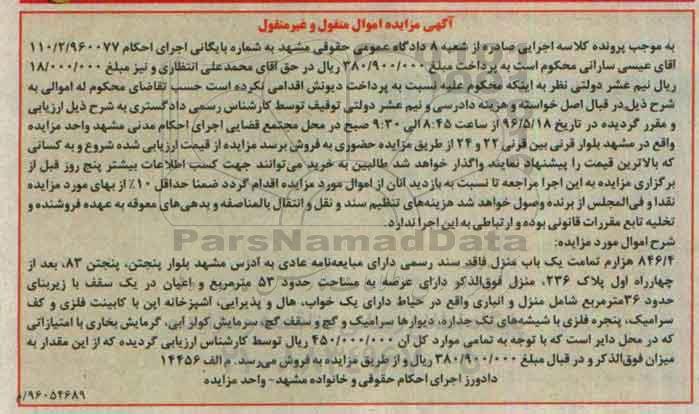 آگهی مزایده اموال منقول و غیرمنقول
به موجب پرونده کلاسه اجرایی صادره از شعبه ۸ دادگاه عمومی حقوقی مشهد به شماره بایگانی اجرای احکام ۱۱۰/۲/۹۶۰۰۷۷
آقای عیسی سارانی محکوم است به پرداخت مبلغ ۳۸۰/۹۰۰/۰۰۰ ریال در حق آقای محمدعلی انتظاری و نیز مبلغ ۱۸/۰۰۰/۰۰۰
ریال نیم عشر دولتی نظر به اینکه محکوم علیه نسبت به پرداخت دیونش اقدامی نکرده است حسب تقاضای محکوم له اموالی به
شرح ذیل در قبال اصل خواسته و هزینه دادرسی و نیم عشر دولتی توقیف توسط کارشناس رسمی دادگستری به شرح ذیل ارزیابی
و مقرر گردیده در تاریخ ۹۶/۵/۱۸ از ساعت ۸:۴۵ الی ۹:۳۰ صبح در محل مجتمع قضایی اجرای احکام مدنی مشهد واحد مزایده
واقع در مشهد بلوار قرنی بین قرنی ۲۲ و ۲۴ از طریق مزایده حضوری به فروش برسد مزایده از قیمت ارزیابی شده شروع و به کسانی
که بالاترین قیمت را پیشنهاد نمایند واگذار خواهد شد طالبین به خرید می‌توانند جهت کسب اطلاعات بیشتر پنج روز قبل از
برگزاری مزایده به این اجرا مراجعه تا نسبت به بازدید آنان از اموال مورد مزایده اقدام گردد ضمنا حداقل ۱۰٪ از بهای مورد مزایده
نقدا و فی‌المجلس از برنده وصول خواهد شد هزینه‌های تنظیم سند و نقل و انتقال بالمناصفه و بدهی‌های معوقه به عهده فروشنده و
تخلیه تابع مقررات قانونی بوده و ارتباطی به این اجرا ندارد.
ParsNamadData
شرح اموال مورد مزایده:
۸۴۶/۴ هزارم تمامت یک باب منزل فاقد سند رسمی دارای مبایعه‌نامه عادی به آدرس مشهد بلوار پنجتن، پنجتن ۸۳، بعد از
چهارراه اول پلاک ۲۳۶، منزل فوق‌الذکر دارای عرصه به مساحت حدود ۵۳ مترمربع و اعیان در یک سقف با زیربنای
حدود ۳۶مترمربع شامل منزل و انباری واقع در حیاط دارای یک خواب، هال و پذیرایی، آشپزخانه اپن با کابینت فلزی و کف
سرامیک، پنجره فلزی با شیشه‌های تک جداره، دیوارها سرامیک و گچ و سقف گچ، سرمایش کولر آبی، گرمایش بخاری با امتیازاتی
که در محل دایر است که با توجه به تمامی موارد کل آن ۴۵۰/۰۰۰/۰۰۰ ریال توسط کارشناس ارزیابی گردیده که از این مقدار به
میزان فوق‌الذکر و در قبال مبلغ ۳۸۰/۹۰۰/۰۰۰ ریال و از طریق مزایده به فروش می‌رسد. م الف ۱۴۴۵۶
دادورز اجرای احکام حقوقی و خانواده مشهد- واحد مزایده
۹۶۰۵۴۶۸۹/م